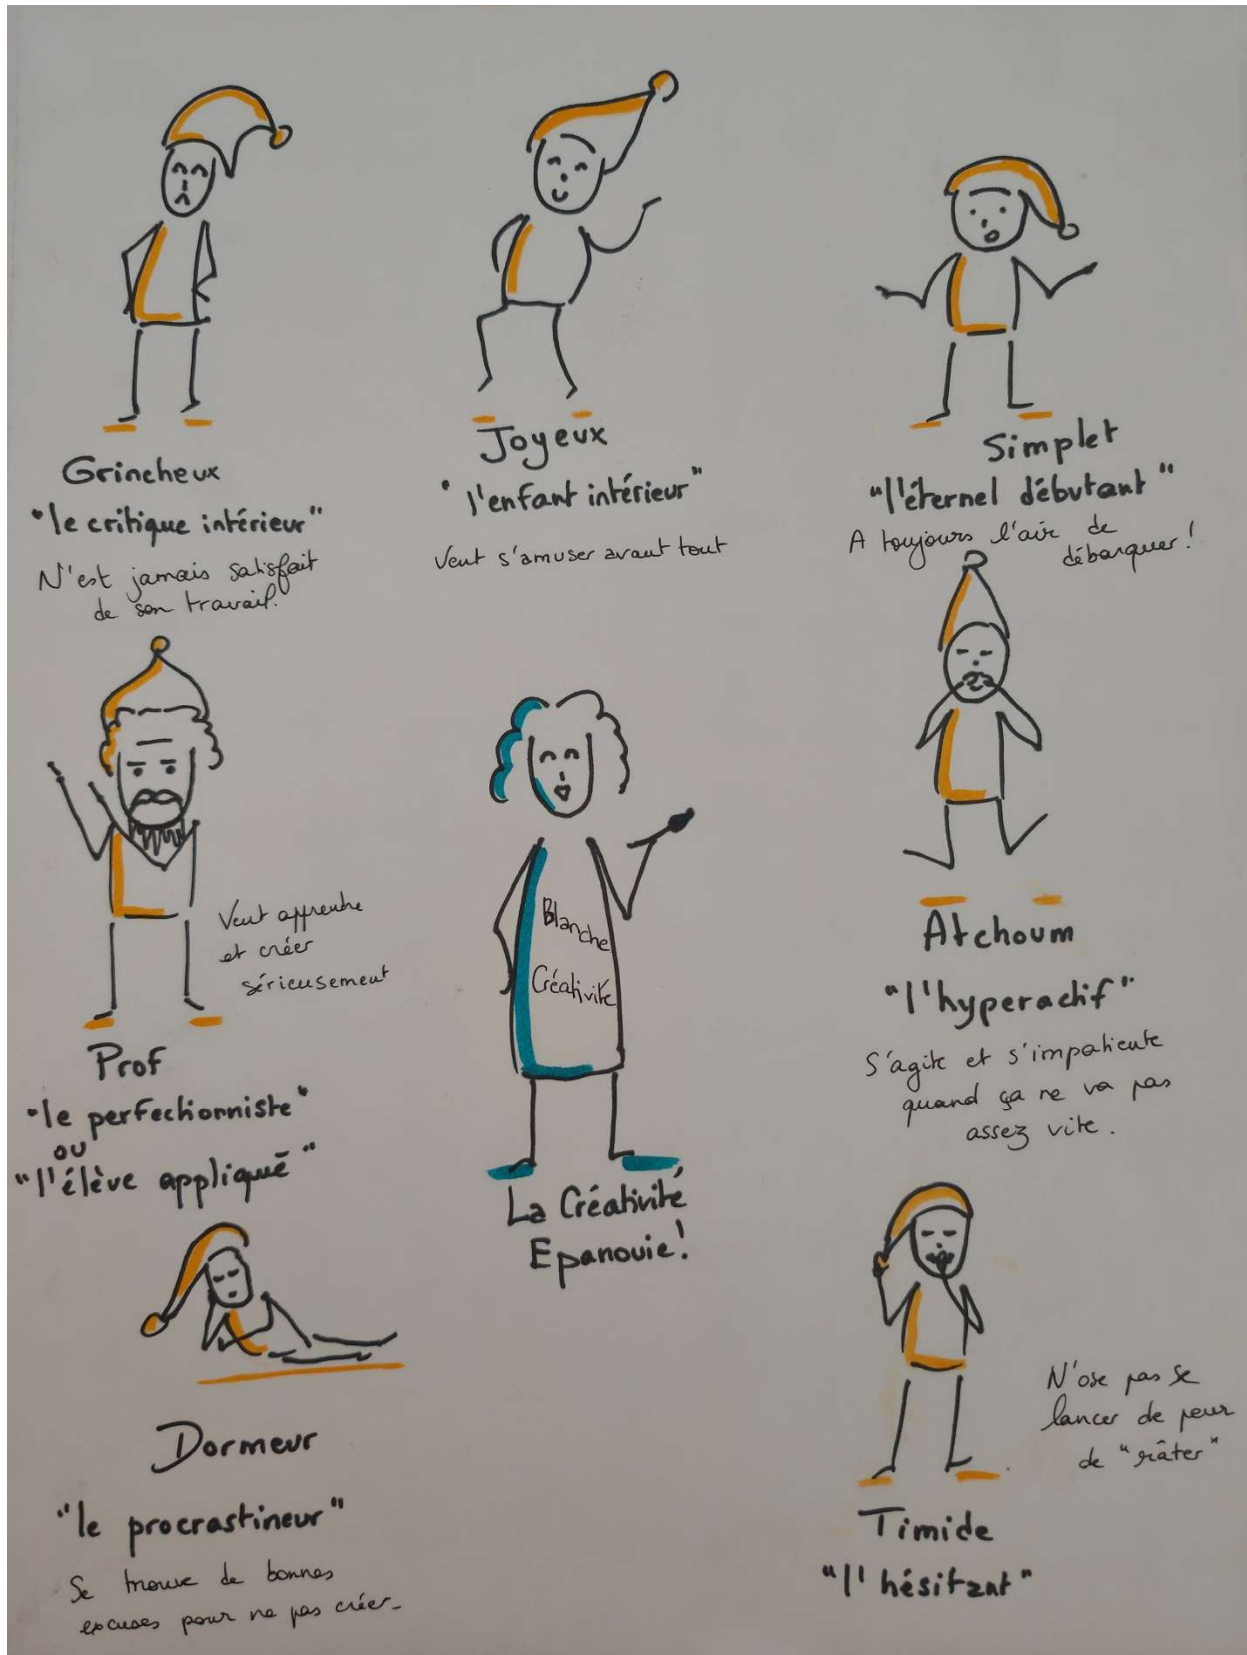 Grincheux
"le critique intérieur"
N'est jamais satisfait
de son travail.
Joyeux
"l'enfant intérieur"
Veut s'amuser avant tout
Simplet
"l'éternel débutant"
A toujours l'air de
débarquer !
Veut apprendre
et créer
sérieusement
Prof
"le perfectionniste"
ou
"l'élève appliqué"
Blanche
Créativité
La Créativité
Epanouie !
Atchoum
"l'hyperactif"
S'agite et s'impatiente
quand ça ne va pas
assez vite.
Dormeur
"le procrastineur"
Se trouve de bonnes
excuses pour ne pas créer_
N'ose pas se
lancer de peur
de "râter"
Timide
"l'hésitant"